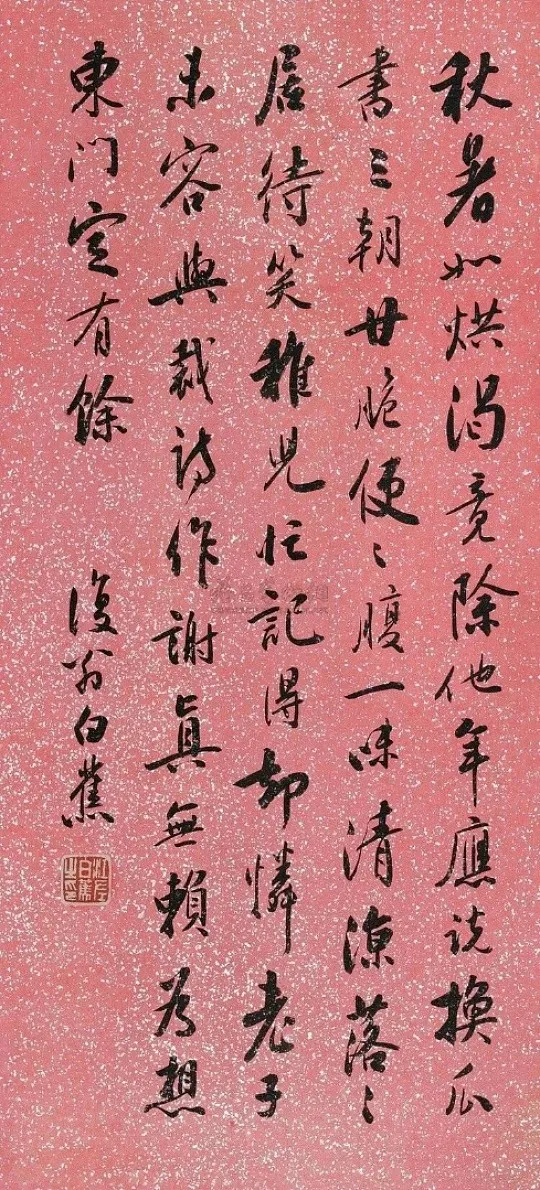 秋暑如烘渴竟除他年應說換瓜
書三朝甘脆便〻腹一味清涼落〻
居待笑稚兒忙記得却憐老子
未容與裁詩作謝真無賴為想
東門定有餘
復翁白蕉